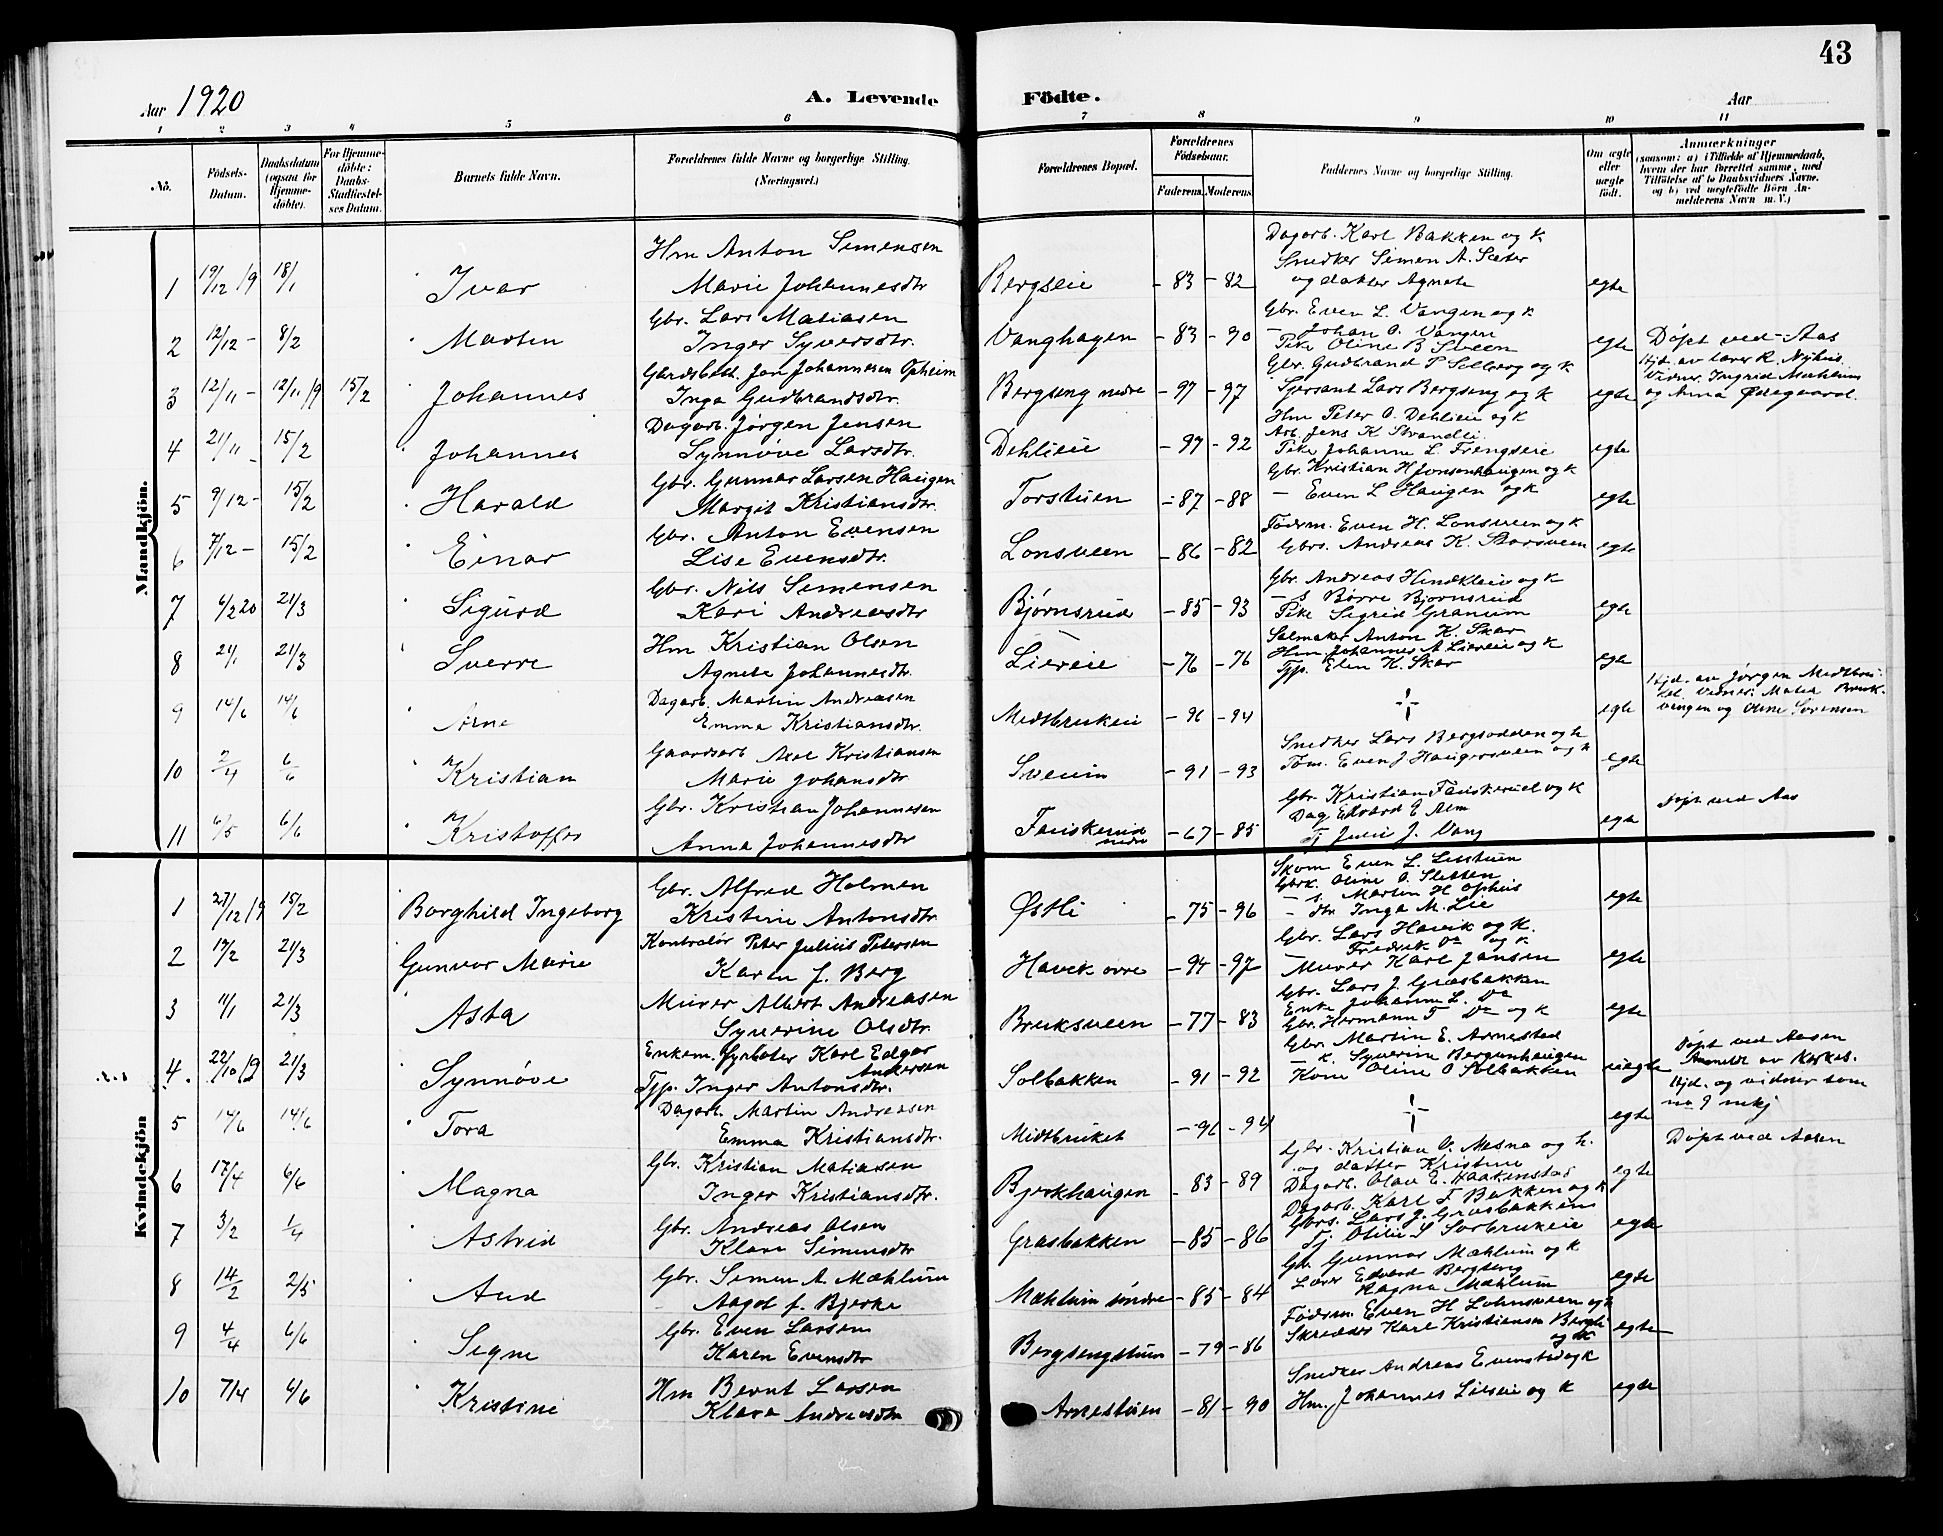 43
Aar 1920
A. Levende
Födte.
Aar
1 2 3 4 5 6 7 8 9 10 11
No.
Födsels-Datum.
Daabsdatum (ogsaa for Hjemme-döbte).
For Hjemme-döbte: Daabs-Stadfæstel-ses Datum.
Barnets fulde Navn.
Forældrenes fulde Navne og borgerlige Stilling. (Næringsvei.)
Forældrenes Bopæl.
Forældrenes Födselsaar.
Faderens. Moderens.
Faddernes Navne og borgerlige Stilling.
Om ægte eller uægte födt.
Anmærkninger
(saasom: a) i Tilfælde af Hjemmedaab,
hvem der har forrettet samme, med
Tilföielse af to Daabsvidners Navne,
og b) ved uægtefödte Börn An-
melderens Navn m. V.)
Mandkjön.
1 19/12 19 18/1 Ivar Hm Anton Simensen
Marie Johannesdtr. Bergseie - 83 - 82 Dagarb. Karl Bakken og k
Snedker Simen A. Sæter
og datter Agnete egte
2 12/12 - 8/2 Martin Gbr. Lars Matiasen
Inger Syversdtr. Vanghagen - 83 - 90 Gbr. Even L. Vangen og k
- Johan O. Vangen
Pike Oline B Sveen egte Døpt ved Aas
3 12/11 - 12/11 19 15/2 Johannes Gardsbest. Jon Johannesen Opheim
Inga Gudbrandsdtr. Bergseng nedre - 97 - 97 Gbr. Gudbrand P Solberg og k
Sersant Lars Bergseng og k egte Hjd. av lærer K. Nyhus
Vidner. Ingrid Mæhlum
og Anna Ødegaard.
4 21/11 - 15/2 Johannes Dagarb. Jørgen Jensen
Synnøve Larsdtr. Dehlieie - 97 - 92 Hm Peter O. Dehlieie og k
Arb. Jens K Strandli.
Pike Johanne L. Frengseie egte
5 9/12 - 15/2 Harald Gbr. Gunnar Larsen Haugen
Margit Kristiansdtr. Torstuen - 87 - 88 Gbr. Kristian H Jonsenhaugen og k
- Even L Haugen og k egte
6 7/12 - 15/2 Einar Gbr. Anton Evensen
Lise Evensdtr. Lonsveen - 86 - 82 Føderm. Even H. Lonsveen og k
Gbrs. Andreas K. Storsveen egte
7 6/2 20 21/3 Sigurd Gbr. Nils Simensen
Kari Andreasdtr Bjørnsrud - 85 - 93 Gbr. Andreas Hindkleiv og k
- s Børre Bjørnsrud
Pike Sigrid Granum egte
8 21/1 21/3 Sverre Hm Kristian Olsen
Agnete Johannesdtr. Liereie - 76 - 76 Salmaker Anton K. Skar
Hm. Johannes A Liereie og k
Tjp. Elen K. Skar egte
9 14/6 14/6 Arne Dagarb. Martin Andreasen
Emma Kristiansdtr. Midtbrukeie - 96 - 94 egte Hjd. av Jørgen Midtbru-
ket. Vidner: Matea Bruk-
vangen og Oline Sørensen
10 2/4 6/6 Kristian Gaardsarb Axel Kristiansen
Marie Johansdtr Sveum - 91 - 93 Snedker Lars Bergsodden og k
Tøm. Even J Haugersveen og k egte
11 6/5 6/6 Kristoffer Gbr. Kristian Johannesen
Anna Johannesdtr Fauskerud nedre - 67 - 85 Gbr. Kristian Fauskerud og k
Dag Edvard E Alm
Tj Julie J. Vang egte Døpt ved Aas
Kvindekjön
1 27/12 19 15/2 Borghild Ingeborg Gbr. Alfred Holmen
Kristine Antonsdtr. Østli - 75 - 96 Skom Even L. Listuen
Gbrk. Oline O. Sletten
- s. Martin H Ophus
- dtr Inga M. Lie egte
2 17/2 21/3 Gunvor Marie Kontrolør Peter Julius Petersen
Karen f. Berg Havik øvre - 94 - 97 Gbr. Lars Havik og k.
- Fredrik Do og k
Murer Karl Jansen egte
3 11/1 21/3 Asta Murer Albert Andreasen
Syverine Olsdtr. Bruksveen - 77 - 83 Gbr. Lars J. Græsbakken
Enke Johanne L. Do
Gbr. Hermann F Do og k egte
4. 22/10 19 21/3 Synnøve Enkem. Fyrbøter Karl Edgar Andersen
Tjp. Inger Antonsdtr. Solbakken - 91 - 92 Gbr Martin E. Arnestad
- k. Syverine Bergenhaugen
Kone Oline O Solbakken uægte Døpt ved Aasen
Anmeldt av Kirkes.
5 14/6 14/6 Tora Dagarb. Martin Andreasen
Emma Kristiansdtr. Midtbruket - 96 - 94 egte Hjd. og vidner som
no 9 mkj
6 17/4 6/6 Magna Gbr. Kristian Matiasen
Inger Kristiansdtr. Bjerkhaugen - 83 - 89 Gbr. Kristian O. Mesna og k.
og datter Kristine
Dagarb. Olav E. Haakenstad egte Døpt ved Aasen
7 3/2 1/4 Astrid Gbr. Andreas Olsen
Klara Simensdtr Græsbakken - 85 - 86 Dagarb. Karl F Bakken og k
Gbrs. Lars J. Græsbakken
Tj. Oline S Sørbrukeie egte
8 14/2 2/5 Aud Gbr. Simen A. Mæhlum
Aagot f. Bjerke Mæhlum søndre - 85 - 84 Gbr Gunnar Mæhlum og k
Lærer Edvard Bergseng
Ragna Mæhlum egte
9 4/4 6/6 Signe Gbr. Even Larsen
Karen Evensdtr Bergsengstuen - 79 - 86 Føderm. Even H Lohnsveen og k
Skredder Karl Kristiansen Bergli
og k egte
10 7/4 6/6 Kristine Hm Bernt Larsen
Klara Andreasdtr Arnestuen - 81 - 90 Snedker Andreas Evenstad og k
Hm. Johannes Lieseie og k egte